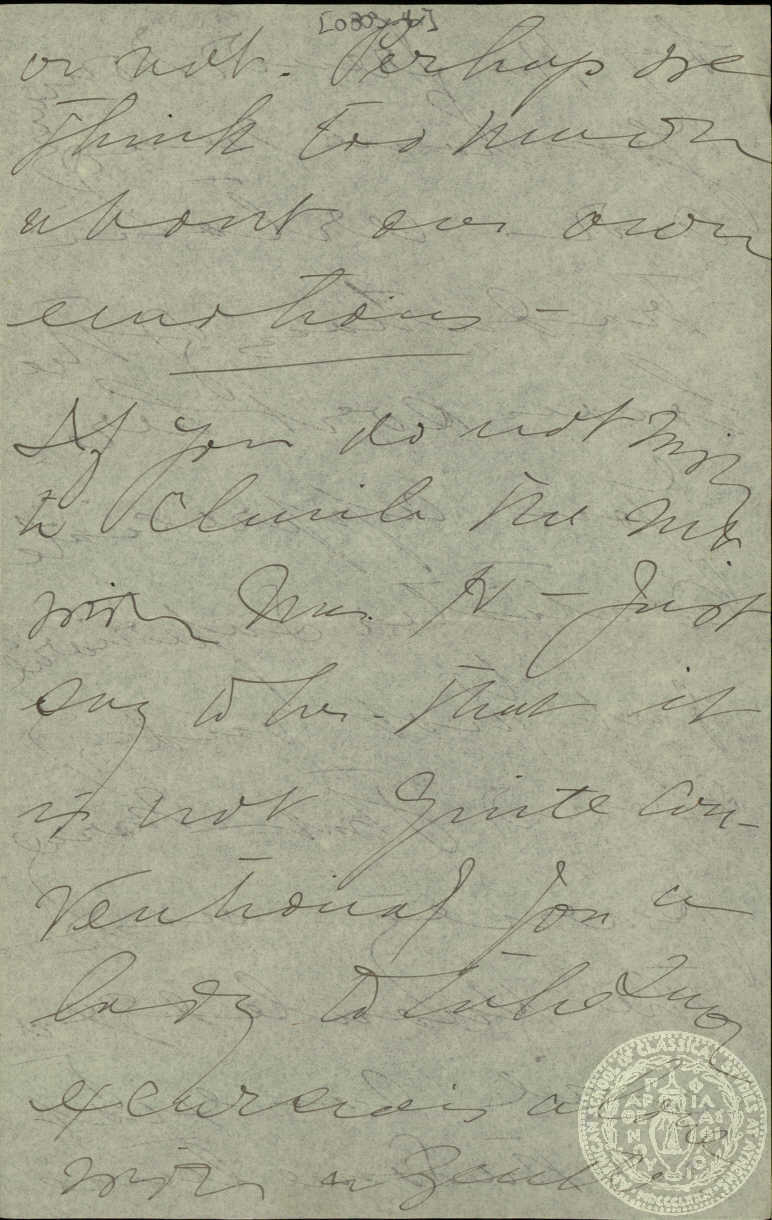 or not. Perhaps we
think too much
about our own
emotions –
If you do not
to climb the
with Mrs. H – Just
say to her that it
is not quite con-
ventional for a
lady to take long
excursions along
with a gentle
AMERICAN SCHOOL OF CLASSICAL STUDIES AT ATHENS
MDCCCLXXXI